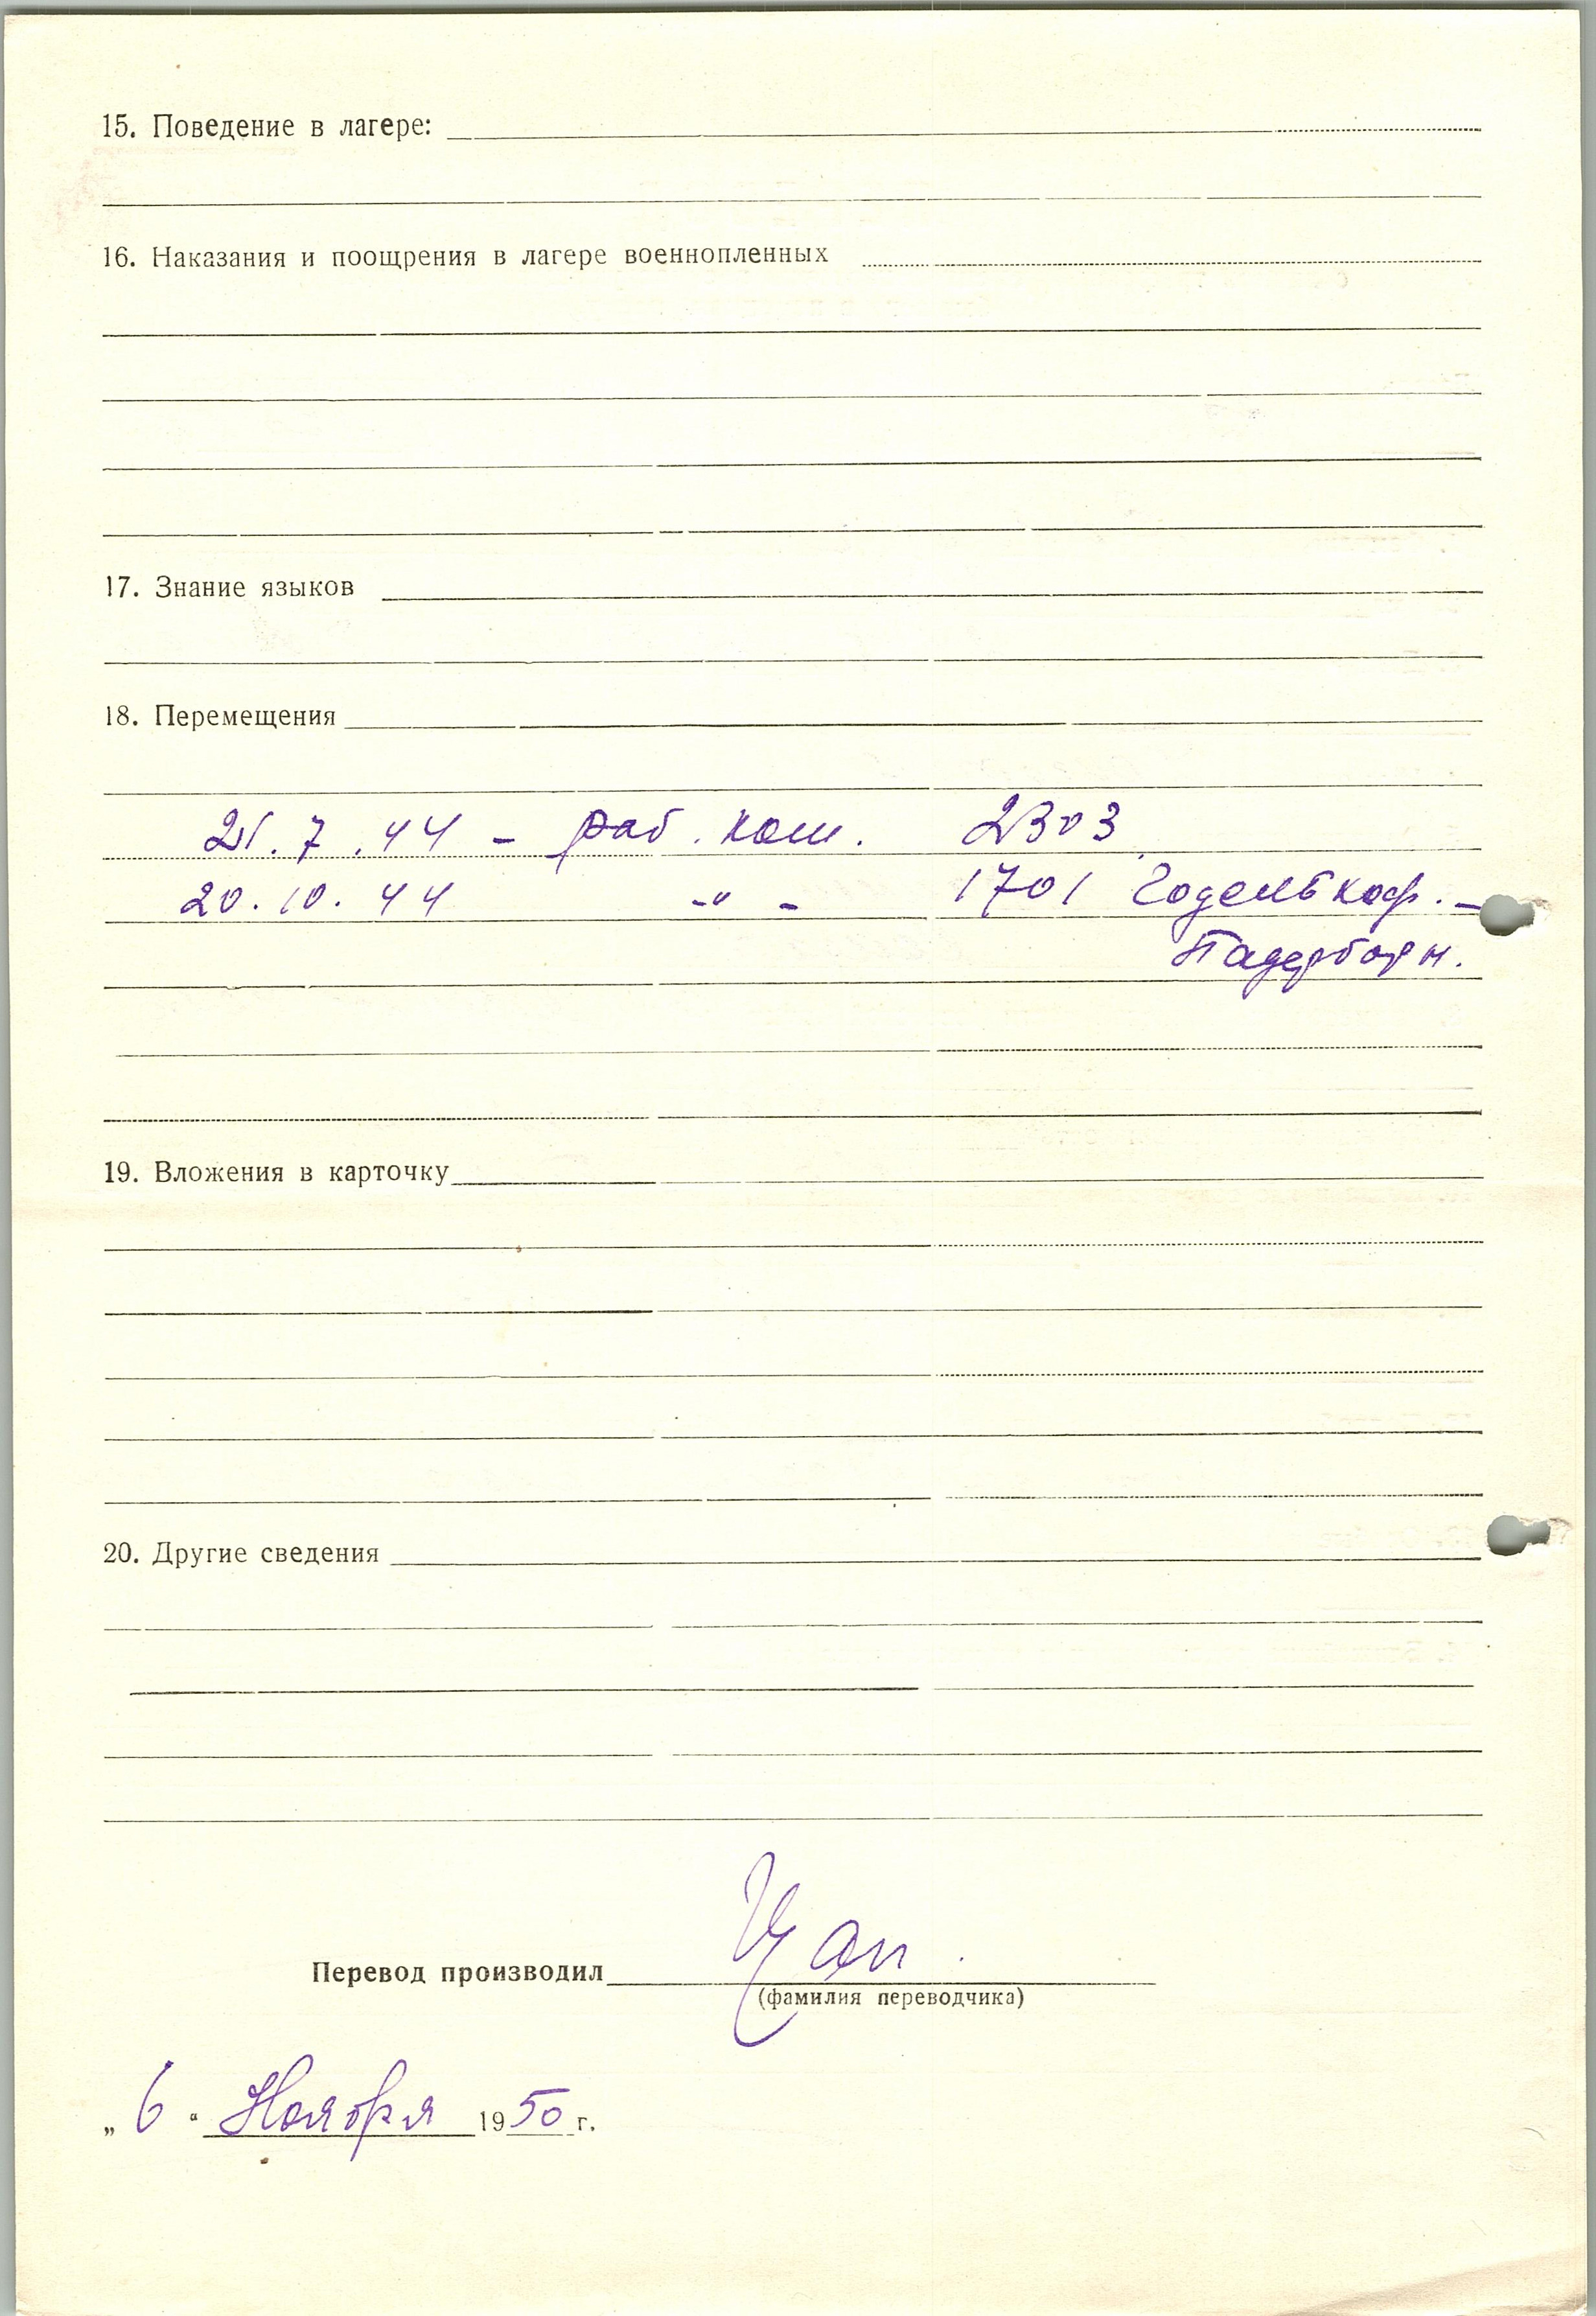 15. Поведение в лагере:
16. Наказания и поощрения в лагере военнопленных
17. Знание языков
18. Перемещения
21. 7 . 44 – раб. ком. 2303
20. 10. 44 -"- 1701 Годельгоф. –
Падерборн.
19. Вложения в карточку
20. Другие сведения
Перевод производил
(фамилия переводчика)
„ 6 “ Ноября 1950 г.